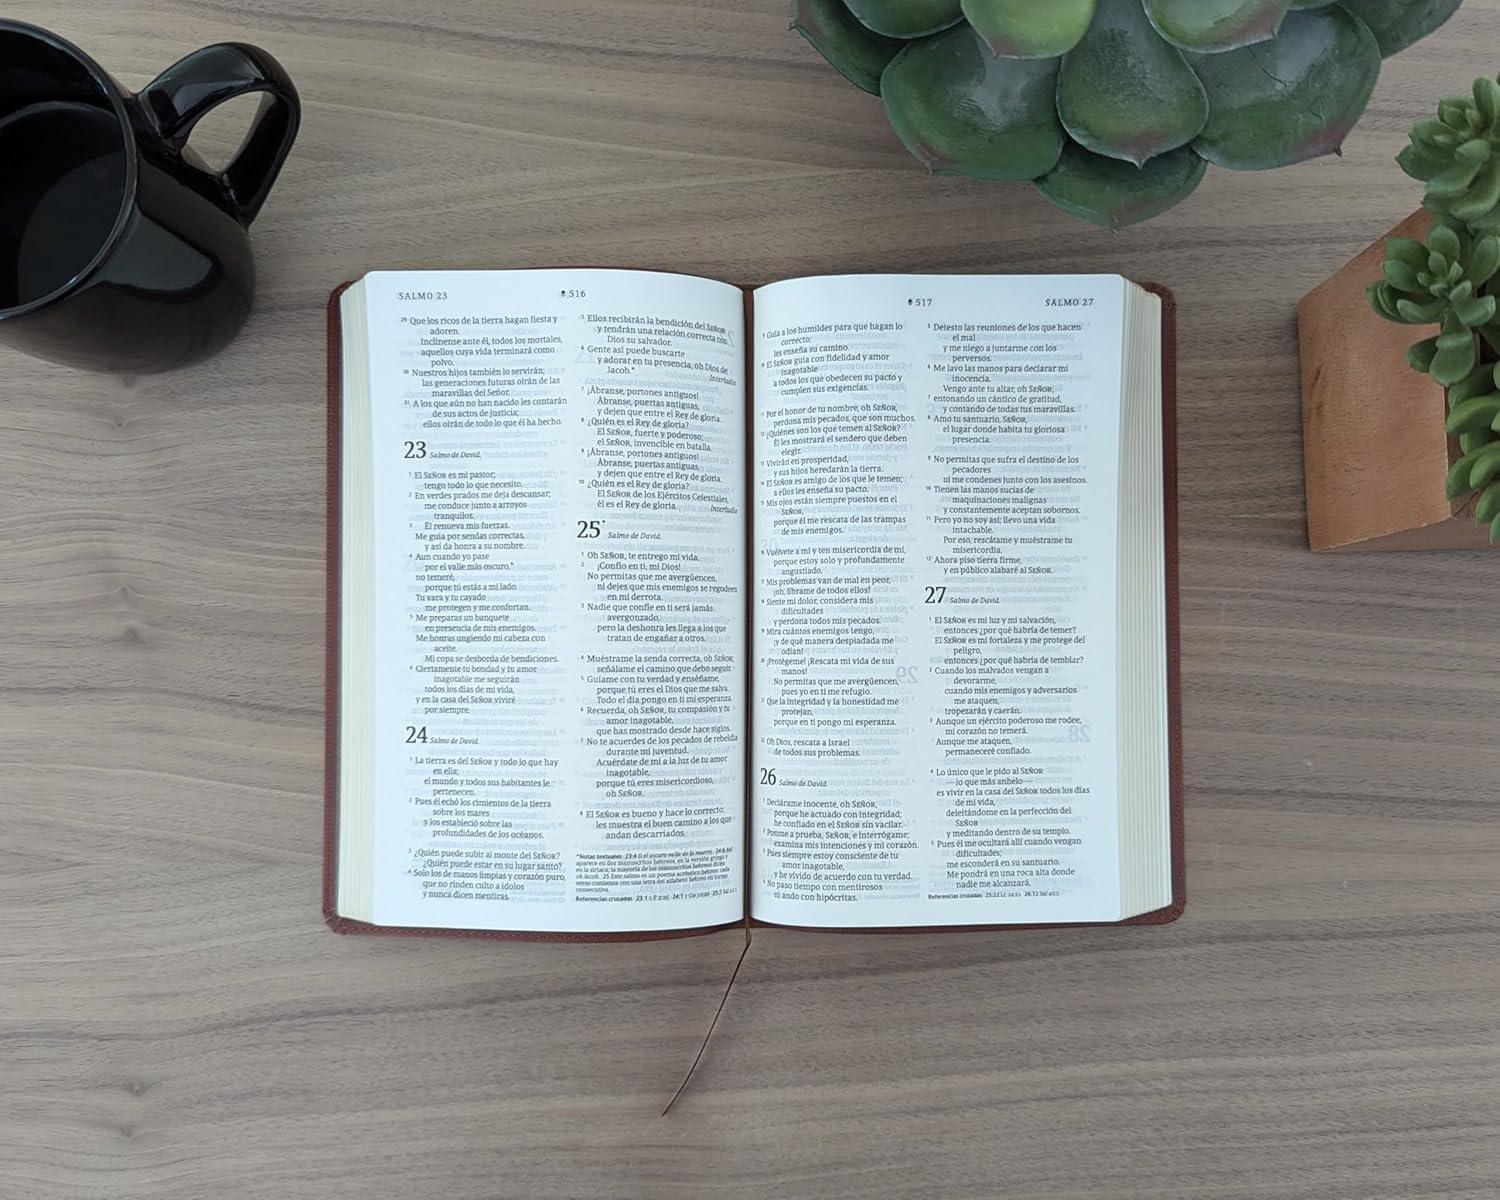 SALMO 23
516
29 Que los ricos de la tierra hagan fiesta y
adoren.
Inclínense ante él, todos los mortales,
aquellos cuya vida terminará como
polvo.
30 Nuestros hijos también lo servirán;
las generaciones futuras oirán de las
maravillas del Señor.
31 A los que aún no han nacido les contarán
de sus actos de justicia;
ellos oirán de todo lo que él ha hecho.
23 Salmo de David.
1 El SEÑOR es mi pastor;
tengo todo lo que necesito.
2 En verdes prados me deja descansar;
me conduce junto a arroyos
tranquilos.
3 Él renueva mis fuerzas.
Me guía por sendas correctas,
y así da honra a su nombre.
4 Aun cuando yo pase
por el valle más oscuro,*
no temeré,
porque tú estás a mi lado.
Tu vara y tu cayado
me protegen y me confortan.
5 Me preparas un banquete
en presencia de mis enemigos.
Me honras ungiendo mi cabeza con
aceite.
Mi copa se desborda de bendiciones.
6 Ciertamente tu bondad y tu amor
inagotable me seguirán
todos los días de mi vida,
y en la casa del SEÑOR viviré
por siempre.
24 Salmo de David.
1 La tierra es del SEÑOR y todo lo que hay
en ella;
el mundo y todos sus habitantes le
pertenecen.
2 Pues él echó los cimientos de la tierra
sobre los mares
y los estableció sobre las
profundidades de los océanos.
3 ¿Quién puede subir al monte del SEÑOR?
¿Quién puede estar en su lugar santo?
4 Solo los de manos limpias y corazón puro,
que no rinden culto a ídolos
y nunca dicen mentiras.
5 Ellos recibirán la bendición del SEÑOR
y tendrán una relación correcta con
Dios su salvador.
6 Gente así puede buscarte
y adorar en tu presencia, oh Dios de
Jacob.*
Interludio
7 ¡Ábranse, portones antiguos!
Ábranse, puertas antiguas,
y dejen que entre el Rey de gloria.
8 ¿Quién es el Rey de gloria?
El SEÑOR, fuerte y poderoso;
el SEÑOR, invencible en batalla.
9 ¡Ábranse, portones antiguos!
Ábranse, puertas antiguas,
y dejen que entre el Rey de gloria.
10 ¿Quién es el Rey de gloria?
El SEÑOR de los Ejércitos Celestiales,
él es el Rey de gloria.
Interludio
25* Salmo de David.
1 Oh SEÑOR, te entrego mi vida.
2 ¡Confío en ti, mi Dios!
No permitas que me avergüencen,
ni dejes que mis enemigos se regodeen
en mi derrota.
3 Nadie que confíe en ti será jamás
avergonzado,
pero la deshonra les llega a los que
tratan de engañar a otros.
4 Muéstrame la senda correcta, oh SEÑOR;
señálame el camino que debo seguir.
5 Guíame con tu verdad y enséñame,
porque tú eres el Dios que me salva.
Todo el día pongo en ti mi esperanza.
6 Recuerda, oh SEÑOR, tu compasión y tu
amor inagotable,
que has mostrado desde hace siglos.
7 No te acuerdes de los pecados de rebeldía
durante mi juventud.
Acuérdate de mí a la luz de tu amor
inagotable,
porque tú eres misericordioso,
oh SEÑOR.
8 El SEÑOR es bueno y hace lo correcto;
les muestra el buen camino a los que
andan descarriados.
*Notas textuales 23:4 O el oscuro valle de la muerte. 24:6 Así
aparece en dos manuscritos hebreos, en la versión griega y
en la siríaca; la mayoría de los manuscritos hebreos dicen
oh Jacob. 25 Este salmo es un poema acróstico hebreo; cada
verso comienza con una letra del alfabeto hebreo en forma
consecutiva.
Referencias cruzadas 23:1
517
SALMO 27
9 Guía a los humildes para que hagan lo
correcto;
les enseña su camino.
10 El SEÑOR guía con fidelidad y amor
inagotable
a todos los que obedecen su pacto y
cumplen sus exigencias.
11 Por el honor de tu nombre, oh SEÑOR,
perdona mis pecados, que son muchos.
12 ¿Quiénes son los que temen al SEÑOR?
Él les mostrará el sendero que deben
elegir.
13 Vivirán en prosperidad,
y sus hijos heredarán la tierra.
14 El SEÑOR es amigo de los que le temen;
a ellos les enseña su pacto.
15 Mis ojos están siempre puestos en el
SEÑOR,
porque él me rescata de las trampas
de mis enemigos.
16 Vuélvete a mí y ten misericordia de mí,
porque estoy solo y profundamente
angustiado.
17 Mis problemas van de mal en peor,
¡oh, líbrame de todos ellos!
18 Siente mi dolor, considera mis
dificultades
y perdona todos mis pecados.
19 Mira cuántos enemigos tengo,
¡y de qué manera despiadada me
odian!
20 ¡Protégeme! ¡Rescata mi vida de sus
manos!
No permitas que me avergüencen,
pues yo en ti me refugio.
21 Que la integridad y la honestidad me
protejan,
porque en ti pongo mi esperanza.
22 Oh Dios, rescata a Israel
de todos sus problemas.
26 Salmo de David.
1 Declárame inocente, oh SEÑOR,
porque he actuado con integridad;
he confiado en el SEÑOR sin vacilar.
2 Ponme a prueba, SEÑOR, e interrógame;
examina mis intenciones y mi corazón.
3 Pues siempre estoy consciente de tu
amor inagotable,
y he vivido de acuerdo con tu verdad.
4 No paso tiempo con mentirosos
ni ando con hipócritas.
5 Detesto las reuniones de los que hacen
el mal
y me niego a juntarme con los
perversos.
6 Me lavo las manos para declarar mi
inocencia.
Vengo ante tu altar, oh SEÑOR,
7 entonando un cántico de gratitud,
y contando de todas tus maravillas.
8 Amo tu santuario, SEÑOR,
el lugar donde habita tu gloriosa
presencia.
9 No permitas que sufra el destino de los
pecadores
ni me condenes junto con los asesinos.
10 Tienen las manos sucias de
maquinaciones malignas
y constantemente aceptan sobornos.
11 Pero yo no soy así; llevo una vida
intachable.
Por eso, rescátame y muéstrame tu
misericordia.
12 Ahora piso tierra firme,
y en público alabaré al SEÑOR.
27 Salmo de David.
1 El SEÑOR es mi luz y mi salvación,
entonces ¿por qué habría de temer?
El SEÑOR es mi fortaleza y me protege del
peligro,
entonces ¿por qué habría de temblar?
2 Cuando los malvados vengan a
devorarme,
cuando mis enemigos y adversarios
me ataquen,
tropezarán y caerán.
3 Aunque un ejército poderoso me rodee,
mi corazón no temerá.
Aunque me ataquen,
permaneceré confiado.
4 Lo único que le pido al SEÑOR
—lo que más anhelo—
es vivir en la casa del SEÑOR todos los días
de mi vida,
deleitándome en la perfección del
SEÑOR
y meditando dentro de su templo.
5 Pues él me ocultará allí cuando vengan
dificultades;
me esconderá en su santuario.
Me pondrá en una roca alta donde
nadie me alcanzará.
Referencias cruzadas 25:22